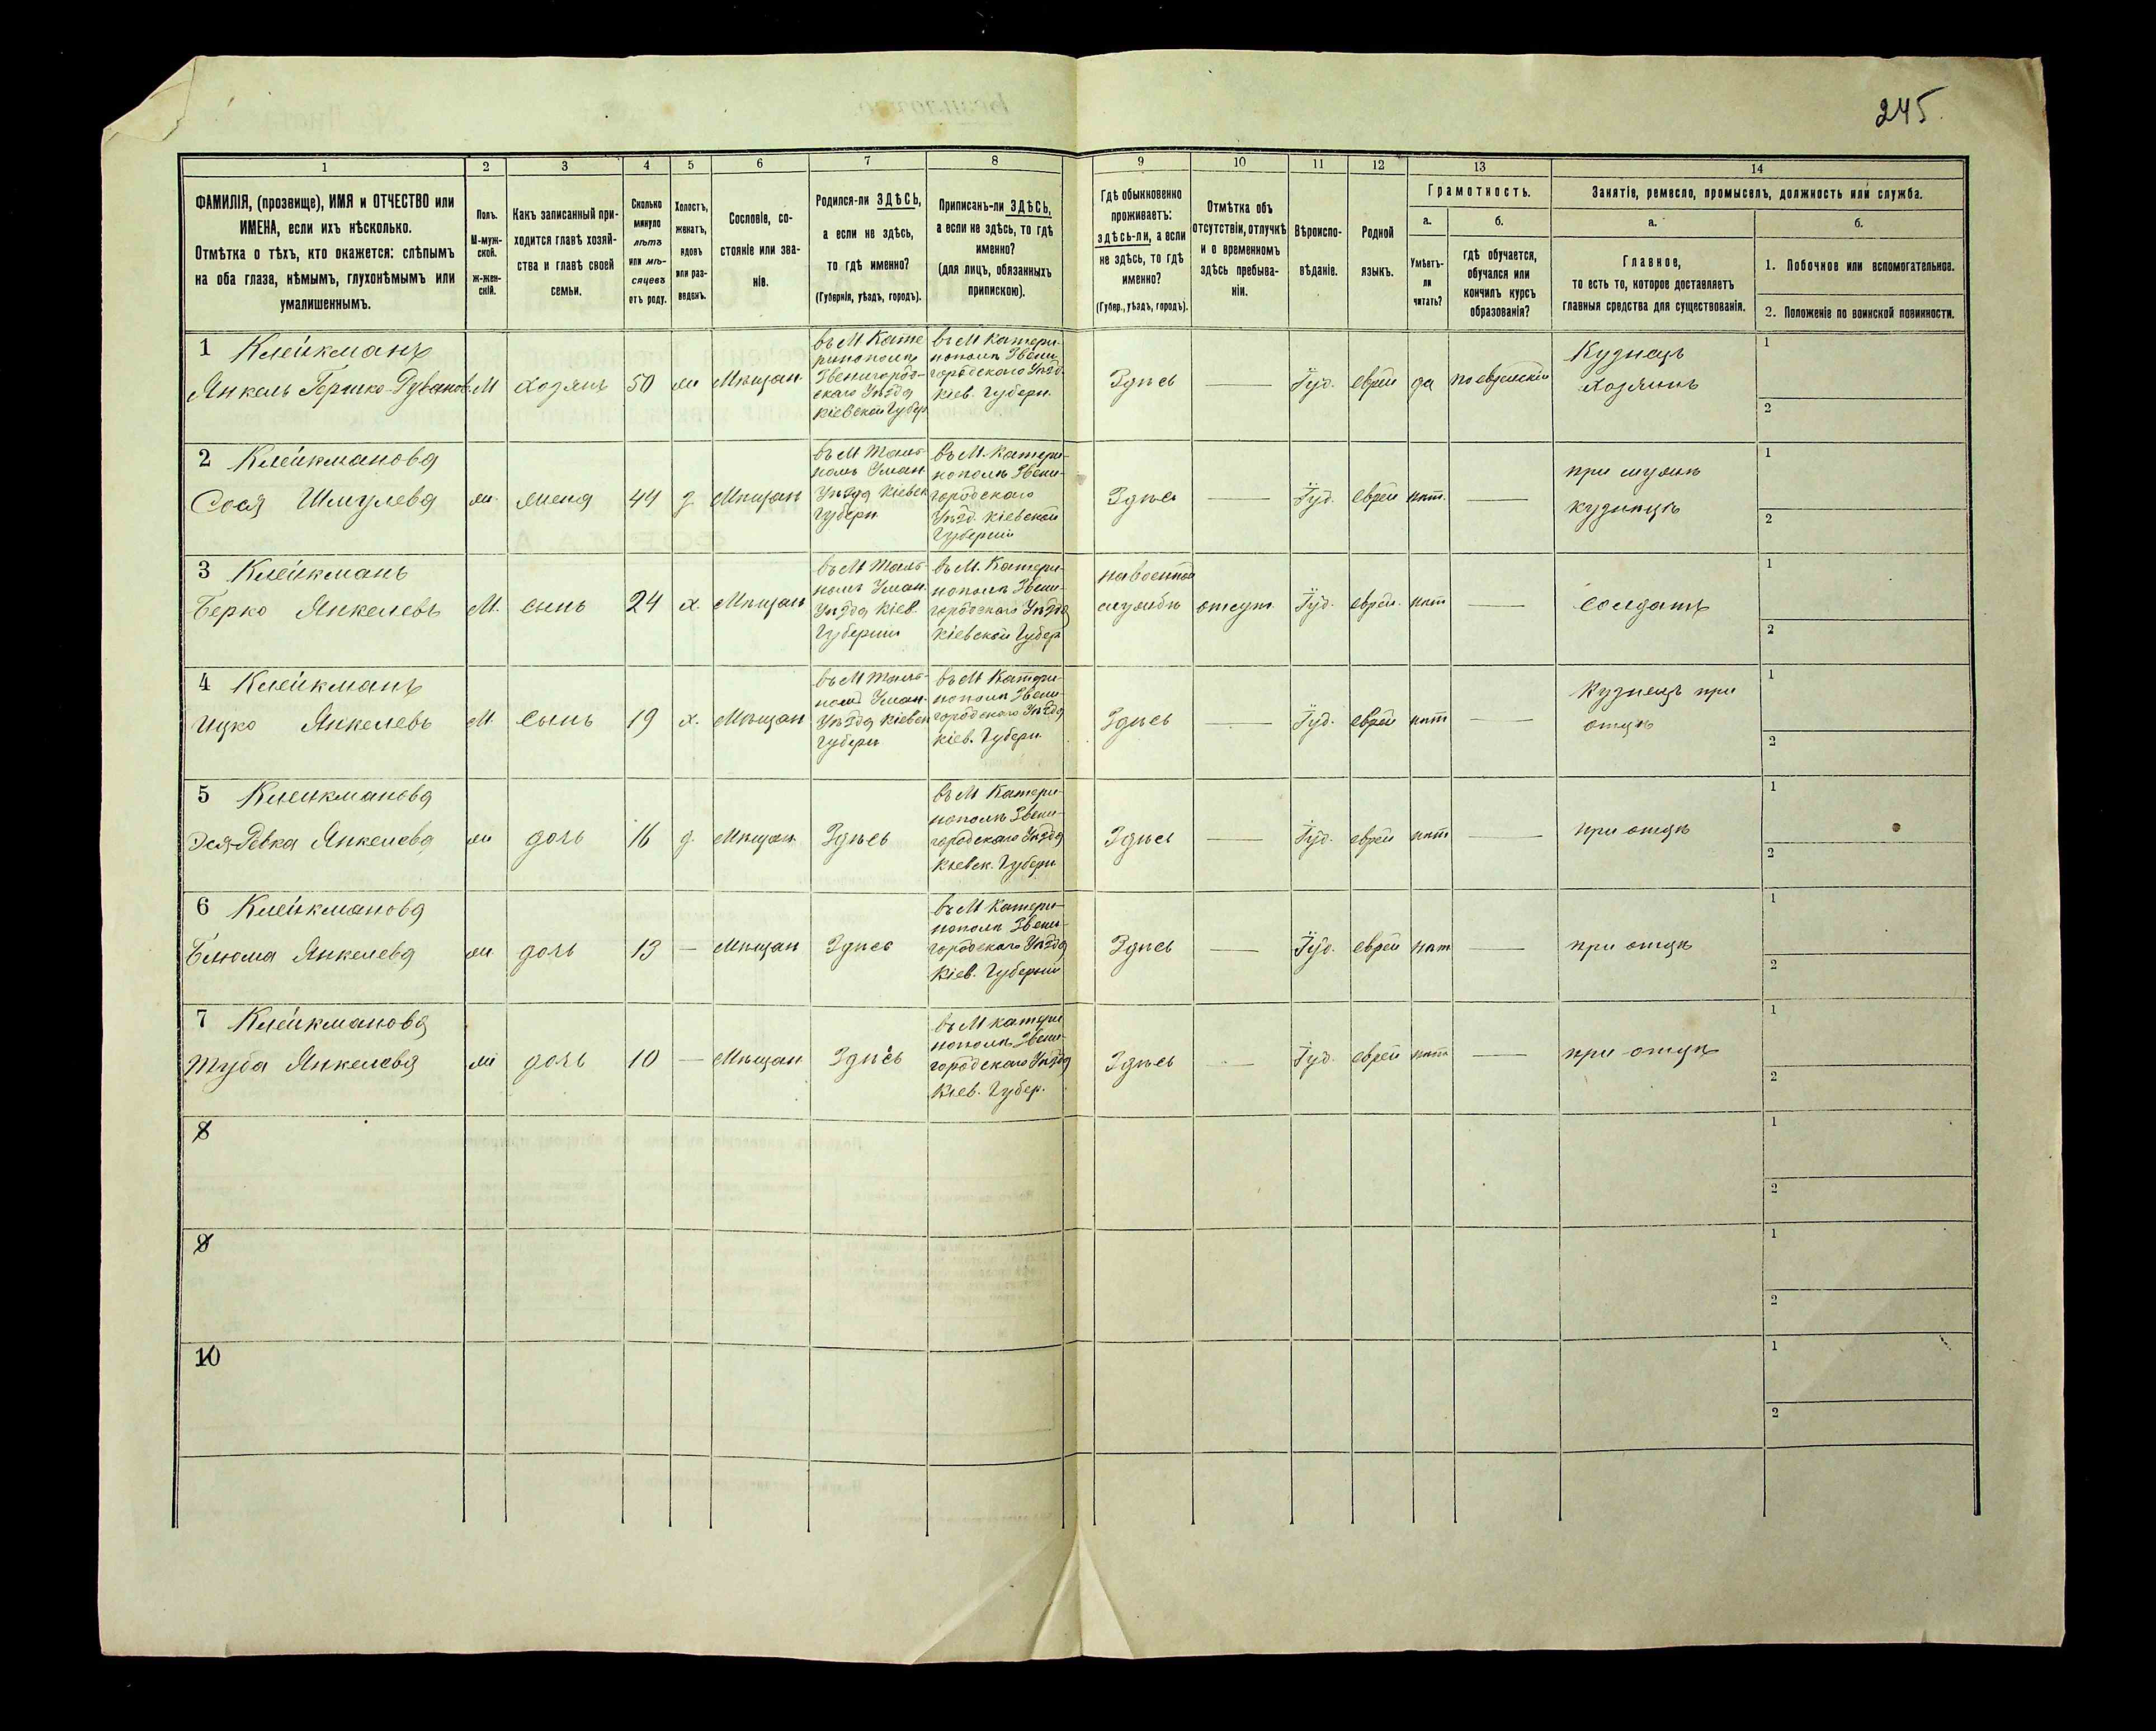 245.
1
2
3
4
5
6
7
8
9
10
11
12
13
14
ФАМИЛІЯ, (прозвище), ИМЯ и ОТЧЕСТВО или
ИМЕНА, если ихъ нѣсколько.
Отмѣтка о тѣхъ, кто окажется: слѣпымъ
на оба глаза, нѣмымъ, глухонѣмымъ или
умалишеннымъ.
Полъ.
М-муж-
ской.
Ж-жен-
скій.
Какъ записанный при-
ходится главѣ хозяй-
ства и главѣ своей
семьи.
Сколько
минуло
лѣтъ
или мѣ-
сяцевъ
отъ роду.
Холостъ,
женатъ,
вдовъ
или раз-
веденъ.
Сословіе, со-
стояніе или зва-
ніе.
Родился-ли ЗДѢСЬ,
а если не здѣсь,
то гдѣ именно?
(Губернія, уѣздъ, городъ).
Приписанъ-ли ЗДѢСЬ,
а если не здѣсь, то гдѣ
именно?
(для лицъ, обязанныхъ
припискою).
Гдѣ обыкновенно
проживаетъ:
здѣсь-ли, а если
не здѣсь, то гдѣ
именно?
(Губер., уѣздъ, городъ).
Отмѣтка объ
отсутствіи, отлучкѣ
и о временномъ
здѣсь пребыва-
ніи.
Вѣроиспо-
вѣданіе.
Родной
языкъ.
Грамотность.
а.
Умѣетъ-
ли
читать?
б.
гдѣ обучается,
обучался или
кончилъ курсъ
образованія?
Занятіе, ремесло, промыселъ, должность или служба.
а.
Главное,
то есть то, которое доставляетъ
главныя средства для существованія.
б.
1. Побочное или вспомогательное.
2. Положеніе по воинской повинности.
1 Клейкманъ
Янкель Гершко-Дувановъ
М
хозяинъ
50
ж
Мѣщан.
въ М Кате
ринополѣ
Звенигород-
скаго Уѣзда
Кіевской Губер
въ М Катери-
нополѣ Звени-
городскаго Уѣзд.
Кіев. Губерн.
Здѣсь
Іуд.
еврей
да
по еврейски
Кузнецъ
хозяинъ
1
2
2 Клейкманова
Сося Шмулева
ж.
жена
44
з
Мѣщан
въ М Таль-
номъ Уман
Уѣзда Кіевск
Губерн
Въ М. Катери-
нополѣ Звени-
городскаго
Уѣзд. Кіевской
Губерніи
Здѣсь
Іуд.
еврей
нѣт.
при мужѣ
кузнецѣ
1
2
3 Клейкманъ
Берко Янкелевъ
М.
сынъ
24
х.
Мѣщан
въ М Таль-
номъ Уман.
Уѣзда Кіев.
Губерніи
въ М. Катери-
нополѣ Звени-
городскаго Уѣзда
Кіевской Губер
на военной
службѣ
отсут.
Іуд.
еврей.
нѣт
солдатъ
1
2
4 Клейкманъ
Ицко Янкелевъ
М.
сынъ
19
х.
Мѣщан
въ М Таль-
номъ Уман.
Уѣзда Кіевск
Губерн
въ М Катери-
нополѣ Звени-
городскаго Уѣзда
Кіев. Губерн.
Здѣсь
Іуд.
еврей
нѣт
Кузнецъ при
отцѣ
1
2
5 Клейкманова
Эся-Ревка Янкелева
ж
дочь
16
д.
Мѣщан
Здѣсь
въ М Катери-
нополѣ Звени-
городскаго Уѣзда
Кіевск. Губерн
Здѣсь
Іуд.
еврей
нѣт
при отцѣ
1
2
6 Клейкманова
Блюма Янкелева
ж.
дочь
13
Мѣщан
Здѣсь
въ М Катери-
нополѣ Звени-
городскаго Уѣзда
Кіев. Губерніи
Здѣсь
Іуд.
еврей
нѣт
при отцѣ
1
2
7 Клейкманова
Туба Янкелева
ж
дочь
10
Мѣщан
Здѣсь
въ М Катери
нополѣ Звени-
городскаго Уѣзда
Кіев. Губер.
Здѣсь
Іуд.
еврей
нѣт
при отцѣ
1
2
8
1
2
9
1
2
10
1
2